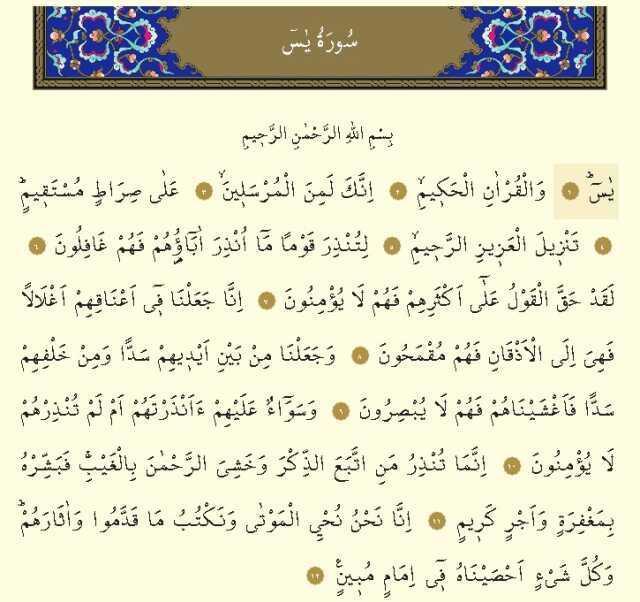 سُورَةُ يٰسٓ
بِسْمِ اللهِ الرَّحْمٰنِ الرَّح۪يمِ
يٰسٓۜ ﴿١﴾ وَالْقُرْاٰنِ الْحَك۪يمِۙ ﴿٢﴾ اِنَّكَ لَمِنَ الْمُرْسَل۪ينَۙ ﴿٣﴾ عَلٰى صِرَاطٍ مُسْتَق۪يمٍۜ
﴿٤﴾ تَنْز۪يلَ الْعَز۪يزِ الرَّح۪يمِۙ ﴿٥﴾ لِتُنْذِرَ قَوْمًا مَٓا اُنْذِرَ اٰبَٓاؤُ۬هُمْ فَهُمْ غَافِلُونَ ﴿٦﴾
لَقَدْ حَقَّ الْقَوْلُ عَلٰٓى اَكْثَرِهِمْ فَهُمْ لَا يُؤْمِنُونَ ﴿٧﴾ اِنَّا جَعَلْنَا ف۪ٓي اَعْنَاقِهِمْ اَغْلَالًا
فَهِيَ اِلَى الْاَذْقَانِ فَهُمْ مُقْمَحُونَ ﴿٨﴾ وَجَعَلْنَا مِنْ بَيْنِ اَيْد۪يهِمْ سَدًّا وَمِنْ خَلْفِهِمْ
سَدًّا فَاَغْشَيْنَاهُمْ فَهُمْ لَا يُبْصِرُونَ ﴿٩﴾ وَسَوَٓاءٌ عَلَيْهِمْ ءَاَنْذَرْتَهُمْ اَمْ لَمْ تُنْذِرْهُمْ
لَا يُؤْمِنُونَ ﴿١٠﴾ اِنَّمَا تُنْذِرُ مَنِ اتَّبَعَ الذِّكْرَ وَخَشِيَ الرَّحْمٰنَ بِالْغَيْبِۚ فَبَشِّرْهُ
بِمَغْفِرَةٍ وَاَجْرٍ كَر۪يمٍ ﴿١١﴾ اِنَّا نَحْنُ نُحْيِ الْمَوْتٰى وَنَكْتُبُ مَا قَدَّمُوا وَاٰثَارَهُمْۜ
وَكُلَّ شَيْءٍ اَحْصَيْنَاهُ ف۪ٓي اِمَامٍ مُب۪ينٍ۟ ﴿١٢﴾